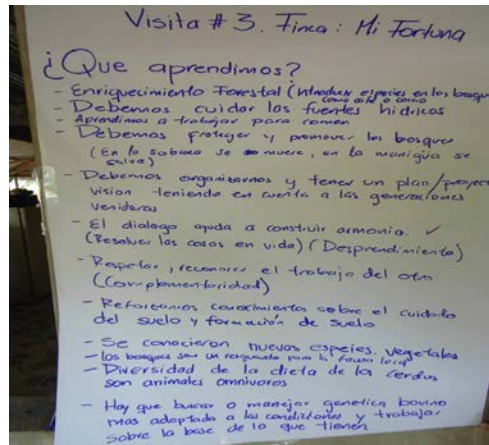 Visita # 3. Finca: Mi Fortuna
¿Que aprendimos?
- Enriquecimiento Forestal (Introducir especies en los bosques
como café o cacao
- Debemos cuidar las fuentes hídricas
- Aprendimos a trabajar para comer
- Debemos proteger y promover los bosques
(En la sabana se muere, en la manigua se
salva)
- Debemos organizarnos y tener un plan/proyecto
vision teniendo en cuenta a las generaciones
venideras
- El dialogo ayuda a construir armonia. ✓
(Resolver las cosas en vida) (Desprendimiento)
- Respetar, reconocer el trabajo del otro
(Complementariedad)
- Reforzamos conocimientos sobre el cuidado
del suelo y formación de suelo
- Se conocieron nuevas especies. vegetales
- los bosques son un resguardo para la fauna local
- Diversidad de la dieta de los cerdos
son animales omnivoros
- Hay que buscar o manejar genetica bovino
mas adaptada a las condiciones y trabajar
sobre la base de lo que tienen